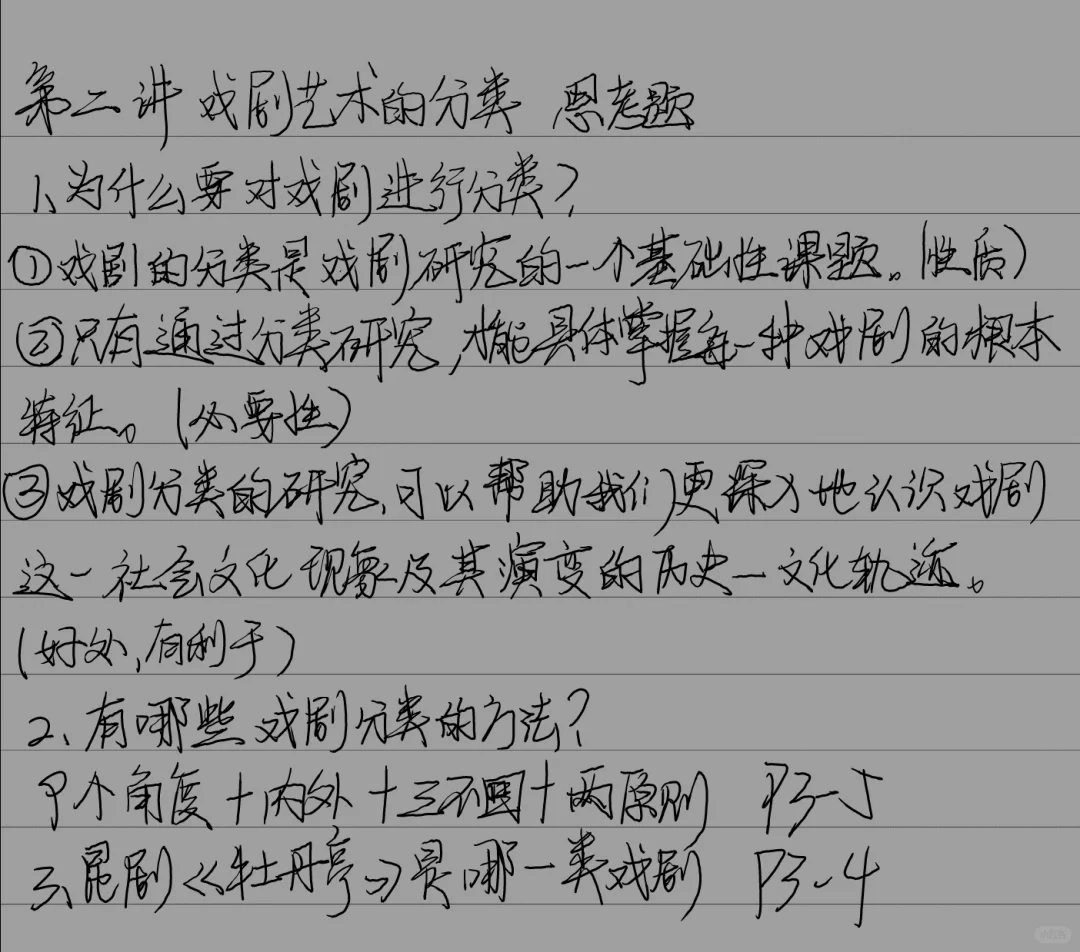 第二讲 戏剧艺术的分类 思考题
1、为什么要对戏剧进行分类?
①戏剧的分类是戏剧研究的一个基础性课题。(性质)
②只有通过分类研究,才能具体掌握每一种戏剧的根本
特征。(必要性)
③戏剧分类的研究,可以帮助我们更深入地认识戏剧
这一社会文化现象及其演变的历史—文化轨迹。
(好处,有利于)
2、有哪些戏剧分类的方法?
个角度+内外+三不同+两原则 P3-5
3、昆剧《牡丹亭》是哪一类戏剧 P3-4